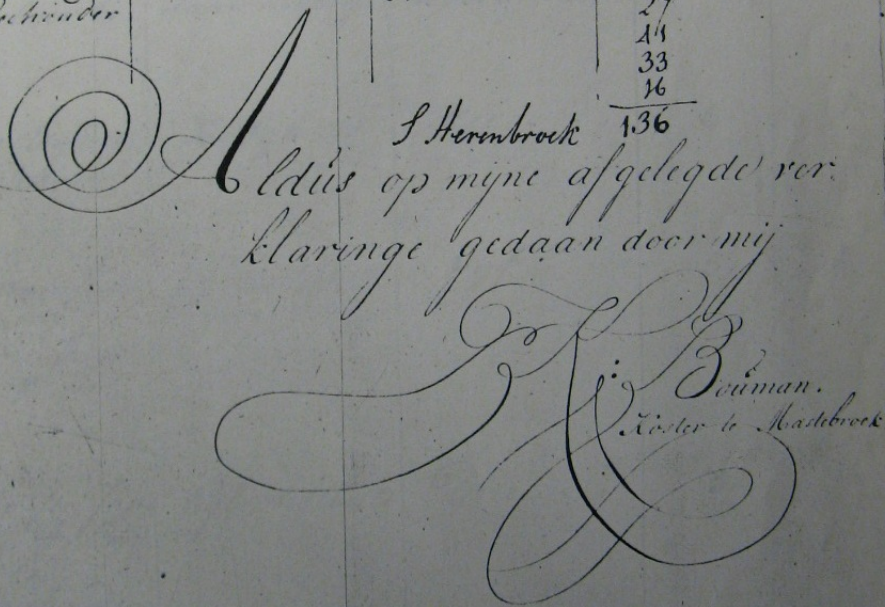 27
41
33
16
S Herenbroek 136
Aldús op mijne afgelegde ver:
klaringe gedaan door mij
K: Boúman.
Kóster te Mastebroek